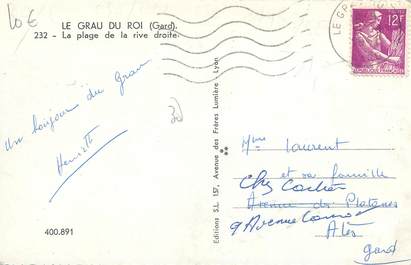 10 €
LE GRAU DU ROI (Gard).
232 - La plage de la rive droite
LE GR
12F
Un bonjour du Grau
30
Mme Laurent
et sa famille
Chez
Avenue des Platanes
9 Avenue
Alès
Gard
400.891
Editions S.L. 157, Avenue des Frères Lumière - Lyon